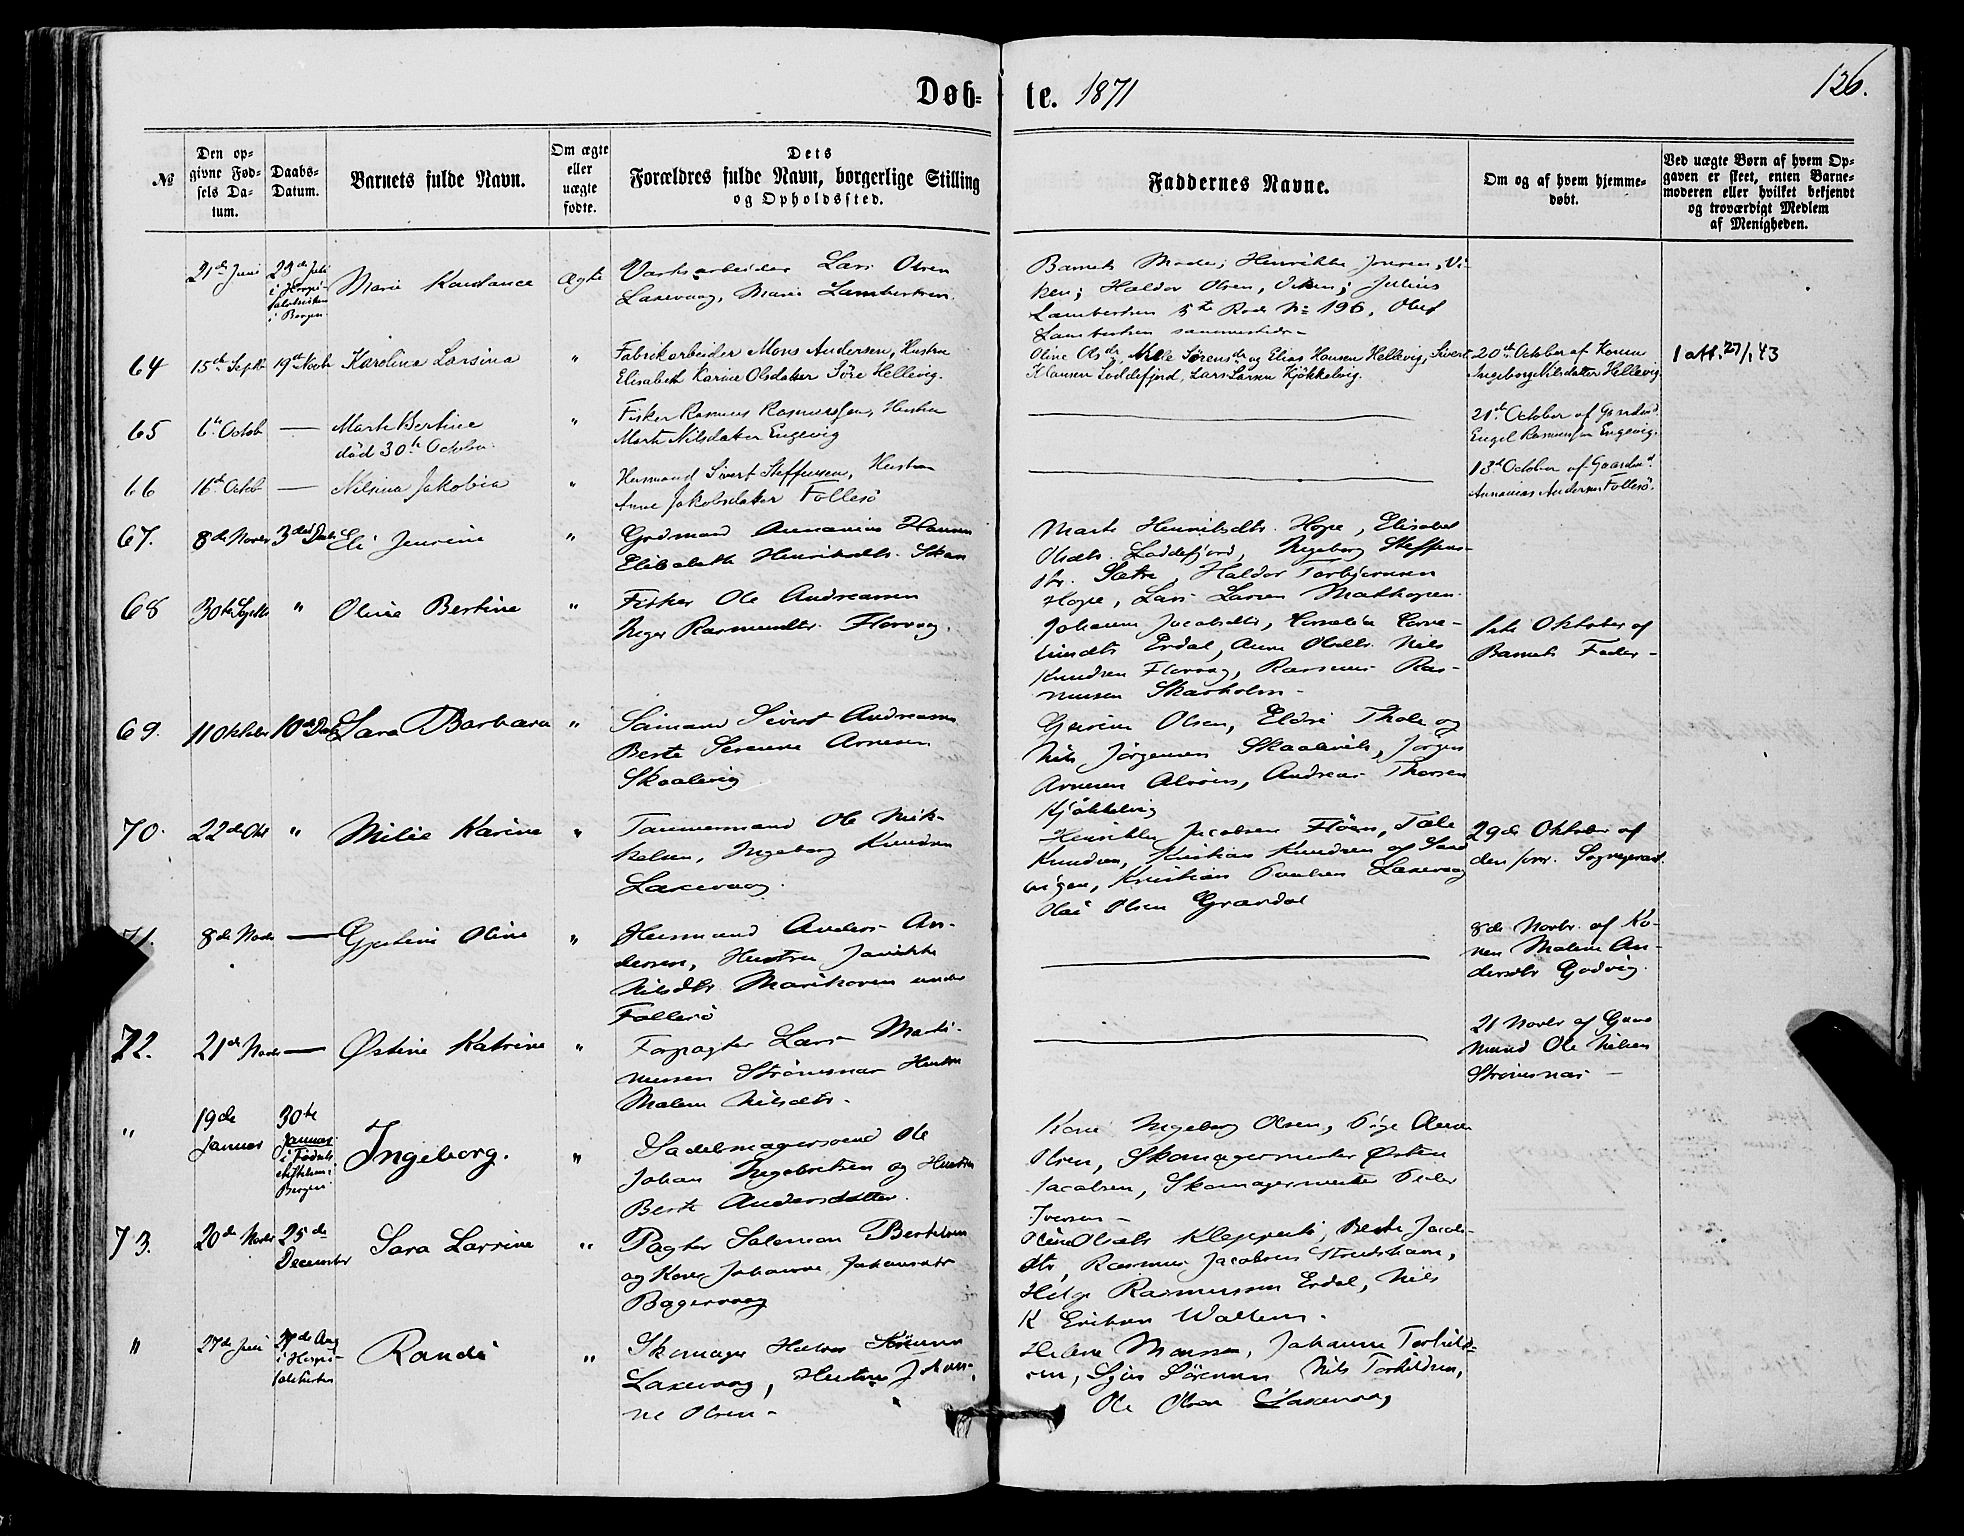 Døb-
te. 1871
126.
№
Den op-
givne Fød-
sels Da-
tum.
Daabs-
Datum.
Barnets fulde Navn.
Om ægte
eller
uægte
fødte.
Dets
Forældres fulde Navn, borgerlige Stilling
og Opholdssted.
Faddernes Navne.
Om og af hvem hjemme-
døbt.
Ved uægte Børn af hvem Op-
gaven er skeet, enten Barne-
moderen eller hvilket bekjendt
og troværdigt Medlem
af Menigheden.
21de Juni
23de Juli
i Hospi-
talskirken
i Bergen
Marie Konstance
Ægte
Værksarbeider Lars Olsen
Laxevaag, Marie Lambertsen.
Barnets Moder; Henrikke Jensen, Vi-
ken; Haldor Olsen, Viken; Julius
Lambertsen 5te Rode No 196, Oluf
Lambertsen sammesteds-
64
15de Septb
19de Novb
Karolina Larsina
"
Fabrikarbeider Mons Andersen, Hustru
Elisabeth Karine Olsdatter Søre Hellevig.
Oline Olsdr, Sørensdr og Elias Hansen Hellevig, Sivert
Klausen Loddefjord, Lars Larsen Kjøkkelvig.
20de October af Konen
Ingeborg Nilsdatter Hellevig.
1 att. 27/1 43
65
6te Octob
—
Marta Bertine
død 30te October
"
Fisker Rasmus Rasmussen, Hustru
Marta Nilsdatter Engevig
21de October af Gaardmd
Engel Rasmussen Engevig.
66
16de Octob
—
Nilsina Jakobia
"
Husmand Sivert Steffensen, Hustru
Anne Jakobsdatter Follesø
18de October af Gaardmd
Annanias Andersen Follesø.
67.
8de Novbr
3die Decb
Eli Jensine
"
Grdmand Annanias Hansen
Elisabeth Henriksdtr. Skær
Marta Henriksdtr. Hope, Elisabet
Olsdtr. Loddefjord, Ingeborg Steffens-
dtr. Sætre, Haldor Torbjørnsen
Hope, Lars Larsen Mathopen.
68
30te Septb
"
Oline Bertine
"
Fisker Ole Andreassen
Inger Rasmusdtr. Florvag.
Johanne Jacobsdtr, Cornelia Corne-
liusdtr Erdal, Anne Olsdtr. Nils
Knudsen Florvag, Rasmus Ras-
mussen Skarholm-
1ste Oktober af
Barnets Fader-
69.
11 Oktober
10de Decb
Sara Barbara
"
Sømand Sivert Andreassen
Berte Serine Arnesen
Skaalevig
Gurine Olsen, Eldri Thole og
Nils Jørgensen Skaalevik, Jørgen
Arnesen Alvøen, Andreas Thorsen
Kjøkkelvig
70.
22de Okt
"
Milie Karine
"
Tømmermand Ole Mik-
kelsen, Ingeborg Knudsen
Laxevaag.
Henrikke Jacobsen Fløen,
Knudsen, Kristian Knudsen af Sand
vigen, Kristian Paulsen Laxevaag
Ole Olsen Gravdal
29de Oktober af
den forr. Sognepræst
71.
8de Novbr
—
Gjertine Oline
"
Husmand Anders An-
dersen, Hustru Jannikke
Nilsdtr Marikoven under
Follesø
8de Novbr. af Ko-
nen Malene An-
dersdtr Godvig.
72.
21de Novbr
—
Østine Katrine
"
Forpagter Lars Marti-
nussen Strømsnes Hustru
Malene Nilsdtr.
21 Novbr af Gaard
mand Ole Nilsen
Strømsnes-
"
19de
Januar
30te
Januar
i Fødsels
stiftelsen i
Bergen
Ingeborg.
"
Sadelmagersvend Ole
Johan Ingebretsen og Hustru
Berte Andersdatter.
Kone Ingeborg Olsen, Pige Anne
Olsen, Skomagermester Østen
Jacobsen, Skomagermester Peder
Iversen-
73.
20de Novbr
25de
December
Sara Larsine
"
Pagter Salomon Bertelsen
og Kone Johanne Johansdtr
Bagervaag
Oline Olsdtr Kleppestø, Berte Jacobs-
dtr, Rasmus Jacobsen Strudshavn,
Helge Rasmussen Erdal, Nils
K Eriksen Wallem.
"
27de Juni
27de Aug
i Hospi-
talskirken
Randi
"
Skomager Halvor
Laxevaag, Hustru Johan-
ne Olsen-
Helene Monsen, Johanne Torkild-
sen, Sørensen Nils Torkildsen,
Ole Olsen Laxevaag